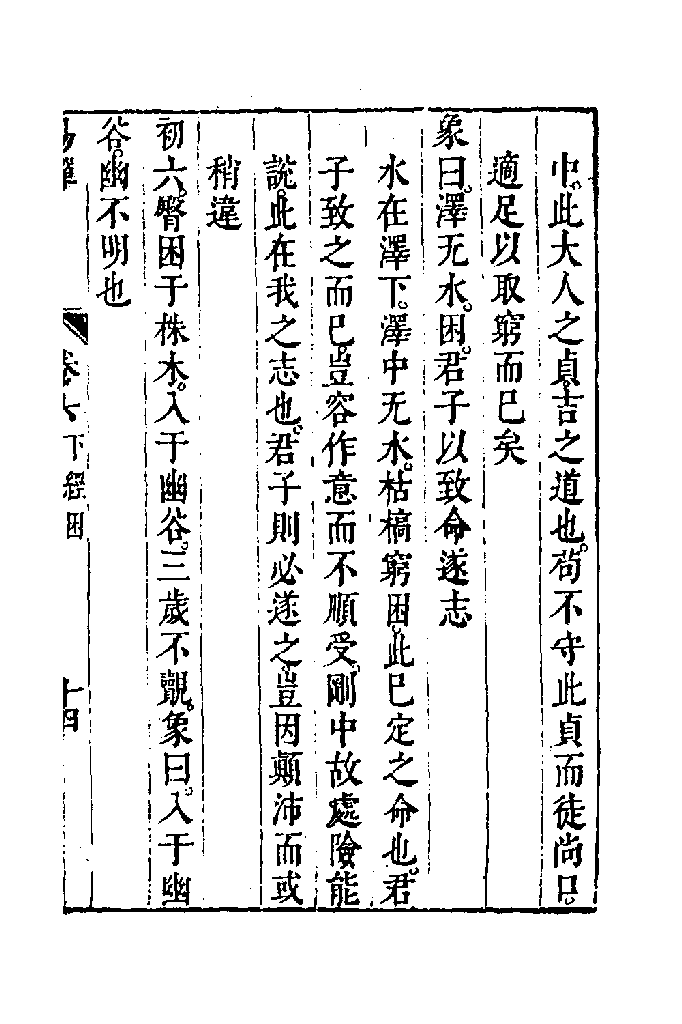 中。此大人之貞。吉之道也。苟不守此貞而徒尚口。
適足以取窮而已矣
象曰。澤无水。困。君子以致命遂志
水在澤下。澤中无水。枯槁窮困。此已定之命也。君
子致之而已。豈容作意而不順受。剛中故處險能
說。此在我之志也。君子則必遂之。豈因顛沛而或
稍違
初六。臀困于株木。入于幽谷。三歲不覿。象曰。入于幽
谷。幽不明也
卷六下經困
十四